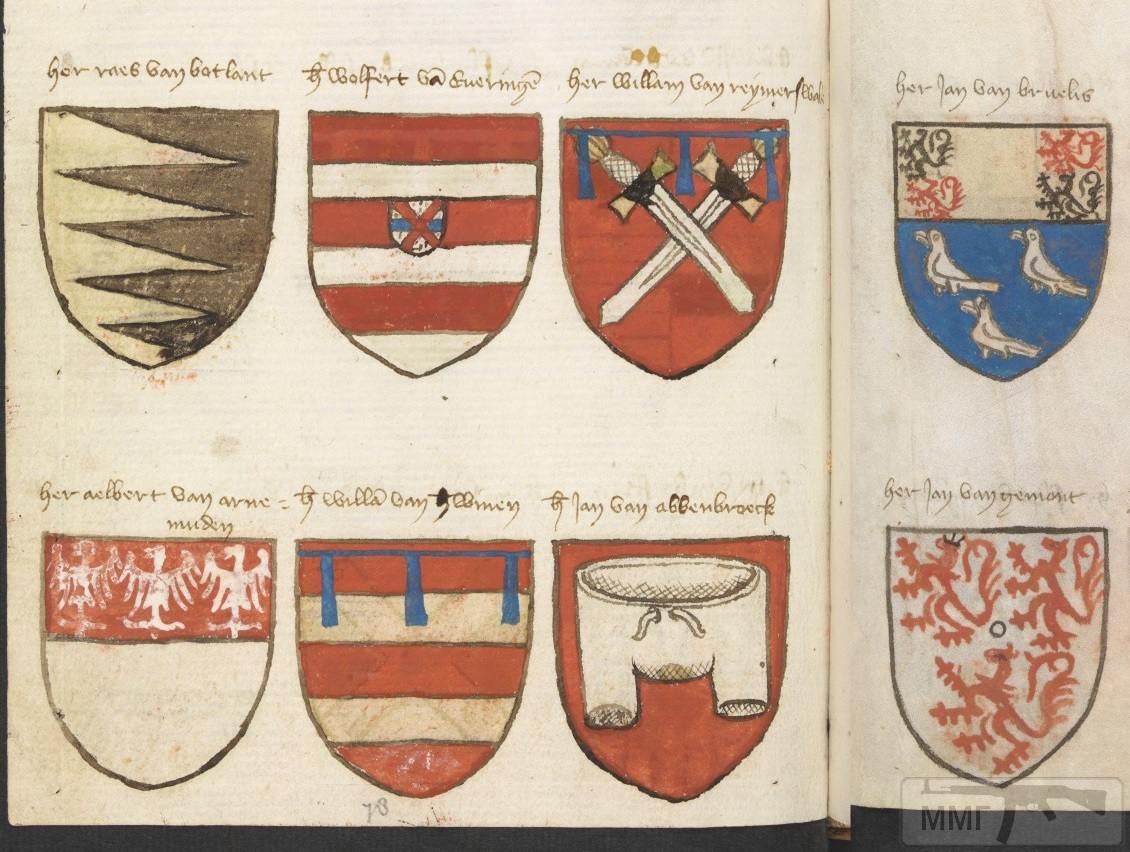 her raes van botlant
h̄ wolfert vā Everingē
her willam van reymerswale
her Jan van bruelis
her aelbert van arne =
muden
h̄ willā van
h̄ Jan van abbenbroeck
her Jan van gemont
78
ММГ